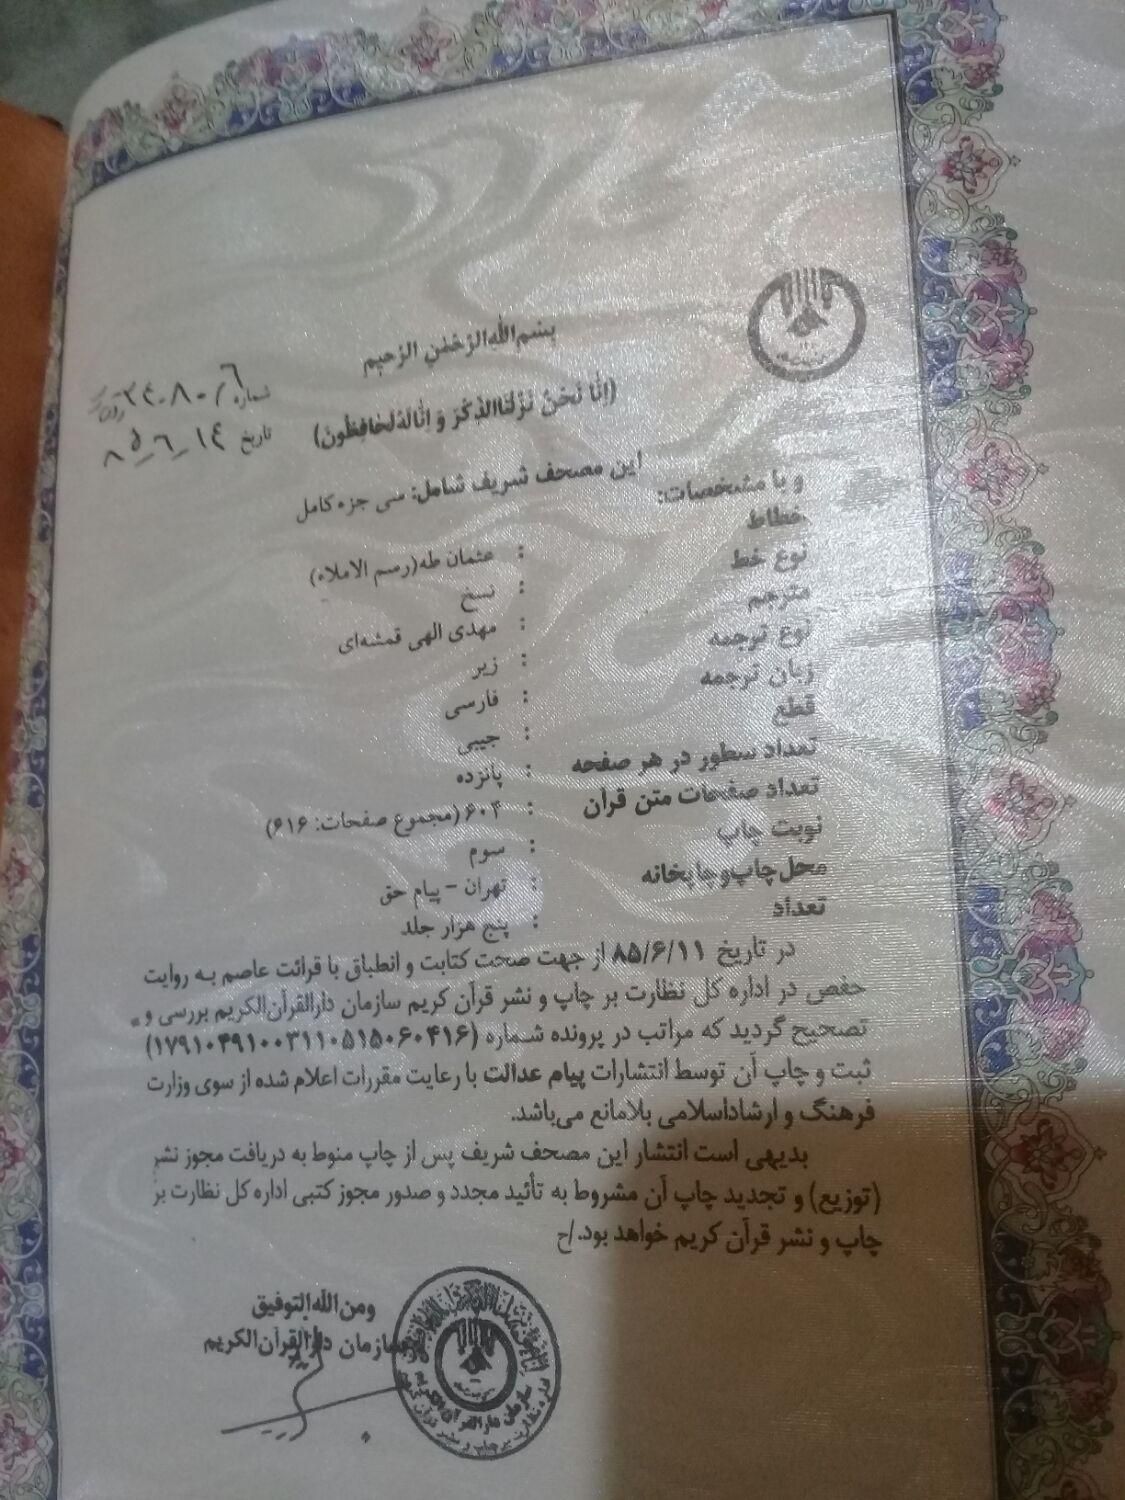 بسم الله الرحمن الرحیم
(اِنّا نَحْنُ نَزَّلْنَا الذِّكْرَ وَ اِنّا لَهُ لَحافِظُونَ)
شماره ۳۲۰۸۰/۶
تاریخ ۸۵-۶-۱۴
این مصحف شریف شامل: سی جزء کامل
و با مشخصات:
خطاط : عثمان طه (رسم الاملاء)
نوع خط : نسخ
مترجم : مهدی الهی قمشه‌ای
نوع ترجمه : زیر
زبان ترجمه : فارسی
قطع : جیبی
تعداد سطور در هر صفحه : پانزده
تعداد صفحات متن قرآن : ۶۰۴ (مجموع صفحات: ۶۱۶)
نوبت چاپ : سوم
محل چاپ و چاپخانه : تهران - پیام حق
تعداد : پنج هزار جلد
در تاریخ ۸۵/۶/۱۱ از جهت صحت کتابت و انطباق با قرائت عاصم به روایت
حفص در اداره کل نظارت بر چاپ و نشر قرآن کریم سازمان دارالقرآن‌الکریم بررسی و
تصحیح گردید که مراتب در پرونده شماره (۱۷۹۱۰۴۹۱۰۰۳۱۱۰۵۱۵۰۶۰۴۱۶)
ثبت و چاپ آن توسط انتشارات پیام عدالت با رعایت مقررات اعلام شده از سوی وزارت
فرهنگ و ارشاد اسلامی بلامانع می‌باشد.
بدیهی است انتشار این مصحف شریف پس از چاپ منوط به دریافت مجوز نشر
(توزیع) و تجدید چاپ آن مشروط به تأئید مجدد و صدور مجوز کتبی اداره کل نظارت بر
چاپ و نشر قرآن کریم خواهد بود./ح
ومن الله التوفیق
سازمان دارالقرآن‌الکریم
سازمان دارالقرآن الکریم
اداره نظارت بر چاپ و نشر قرآن کریم